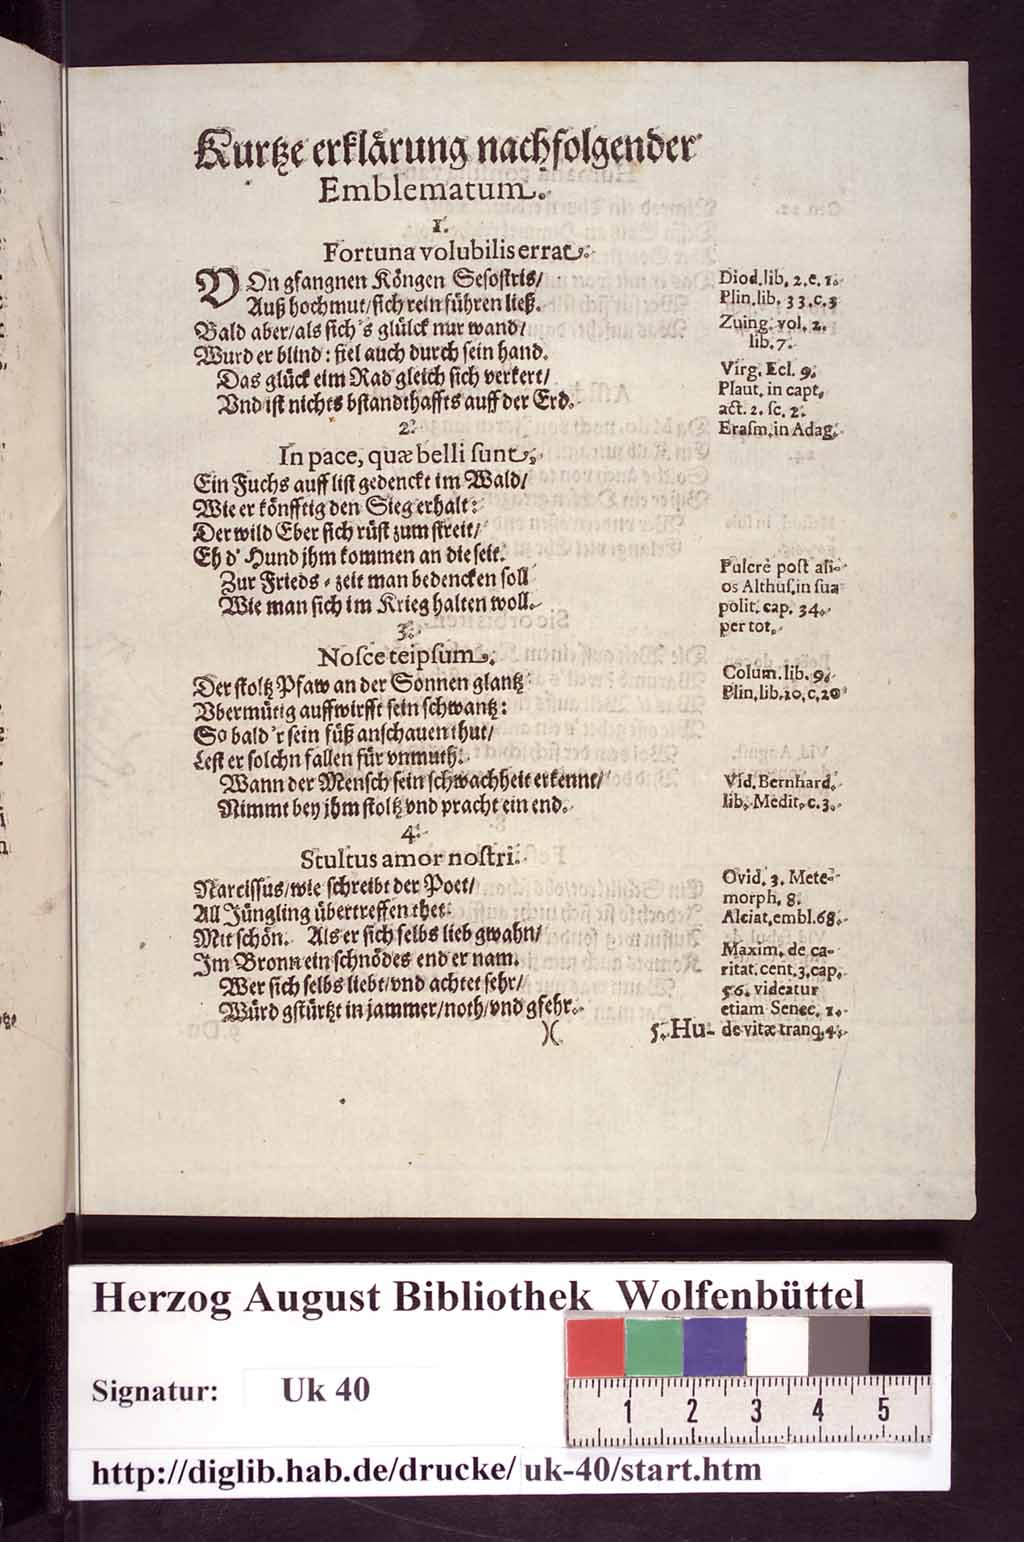 Kurtze erklärung nachfolgender
Emblematum.
1.
Fortuna volubilis errat.
VOn gfangnen Köngen Sesostris/
Auß hochmut/sich rein führen ließ.
Bald aber/als sich's glück nur wand/
Wurd er blind: fiel auch durch sein hand.
Das glück eim Rad gleich sich verkert/
Vnd ist nichts bstandthaffts auff der Erd.
Diod. lib. 2. c. 1.
Plin. lib. 33. c. 3
Zuing. vol. 2.
lib. 7.
Virg. Ecl. 9.
Plaut. in capt.
act. 2. sc. 2.
Erasm. in Adag.
2.
In pace, quæ belli sunt.
Ein Fuchs auff list gedenckt im Wald/
Wie er könfftig den Sieg erhalt:
Der wild Eber sich rüst zum streit/
Eh d' Hund jhm kommen an die seit.
Zur Frieds-zeit man bedencken soll
Wie man sich im Krieg halten woll.
Pulcrè post ali-
os Althus. in sua
polit. cap. 34.
per tot.
3.
Nosce teipsum.
Der stoltz Pfaw an der Sonnen glantz
Vbermütig auffwirfft sein schwantz:
So bald'r sein füß anschauen thut/
Lest er solchn fallen für vnmuth.
Wann der Mensch sein schwachheit erkennt/
Nimmt bey jhm stoltz vnd pracht ein end.
Colum. lib. 9.
Plin. lib. 10. c. 20
Vid. Bernhard.
lib. Medit. c. 3.
4.
Stultus amor nostri.
Narcissus/wie schreibt der Poet/
All Jüngling übertreffen thet
Mit schön. Als er sich selbs lieb gwahn/
Im Bronn ein schnödes end er nam.
Wer sich selbs liebt/vnd achtet sehr/
Würd gstürtzt in jammer/noth/vnd gfehr.
Ovid. 3. Mete-
morph. 8.
Alciat. embl. 68.
Maxim. de ca-
ritat. cent. 3. cap.
56. videatur
etiam Senec. 1.
de vitæ tranq. 4.
)( 5. Hu-
Herzog August Bibliothek Wolfenbüttel
Signatur: Uk 40
1 2 3 4 5
http://diglib.hab.de/drucke/uk-40/start.htm